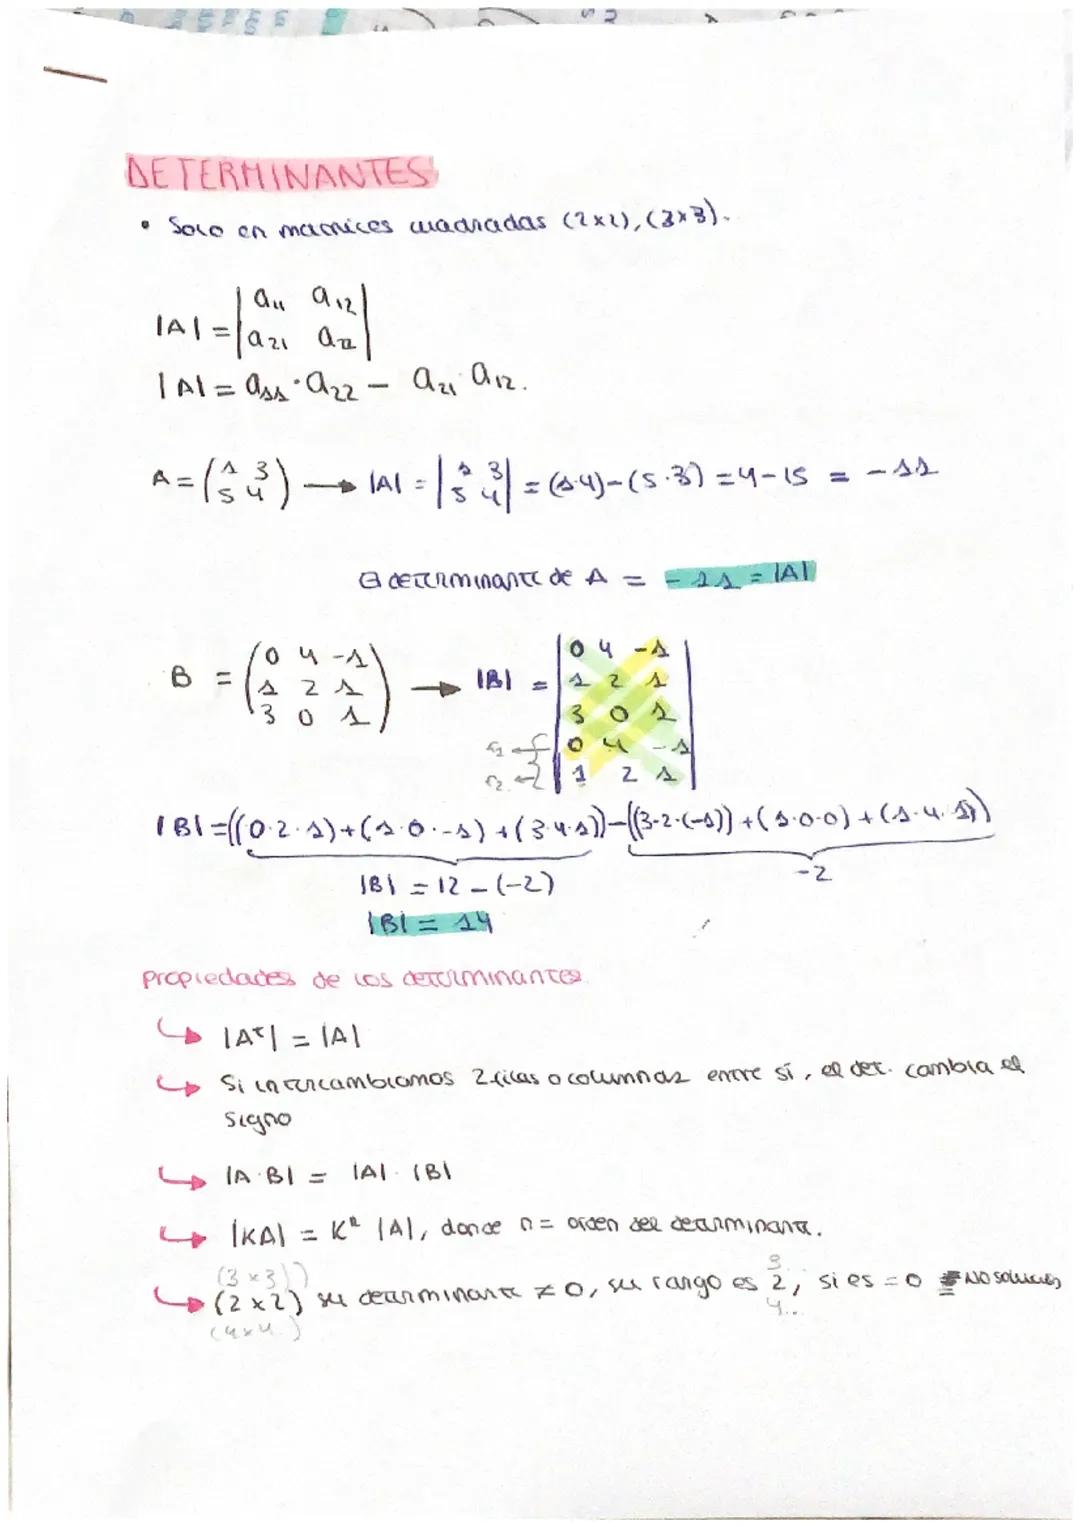 DETERMINANTES
• Solo en matrices cuadradas (2x2), (3x3).
|A| = | a11 a12 |
| a21 a22 |
|A| = a11 · a22 − a21 · a12.
A = ( 1 3 ) → |A| = | 1 3 | = (1·4)-(5·3) = 4-15 = -11
( 5 4 ) | 5 4 |
El determinante de A = -11 = |A|
B = ( 0 4 -1 ) → |B| = | 0 4 -1 |
( 1 2 1 ) | 1 2 1 |
( 3 0 1 ) | 3 0 1 |
r1 ← | 0 4 -1 |
r2 ← | 1 2 1 |
|B| = ((0·2·1)+(1·0·-1)+(3·4·1))-((3·2·(-1))+(1·0·0)+(1·4·1))
|B| = 12 - (-2)
-2
|B| = 14
propiedades de los determinantes
↳ |Aᵗ| = |A|
↳ Si intercambiamos 2 filas o columnas entre sí, el det. cambia el
signo
↳ |A·B| = |A|·|B|
↳ |KA| = Kⁿ |A|, donde n = orden del determinante.
(3x3) 3
↳ (2x2) su determinante ≠ 0, su rango es 2, si es = 0 NO
(4x4) 4..